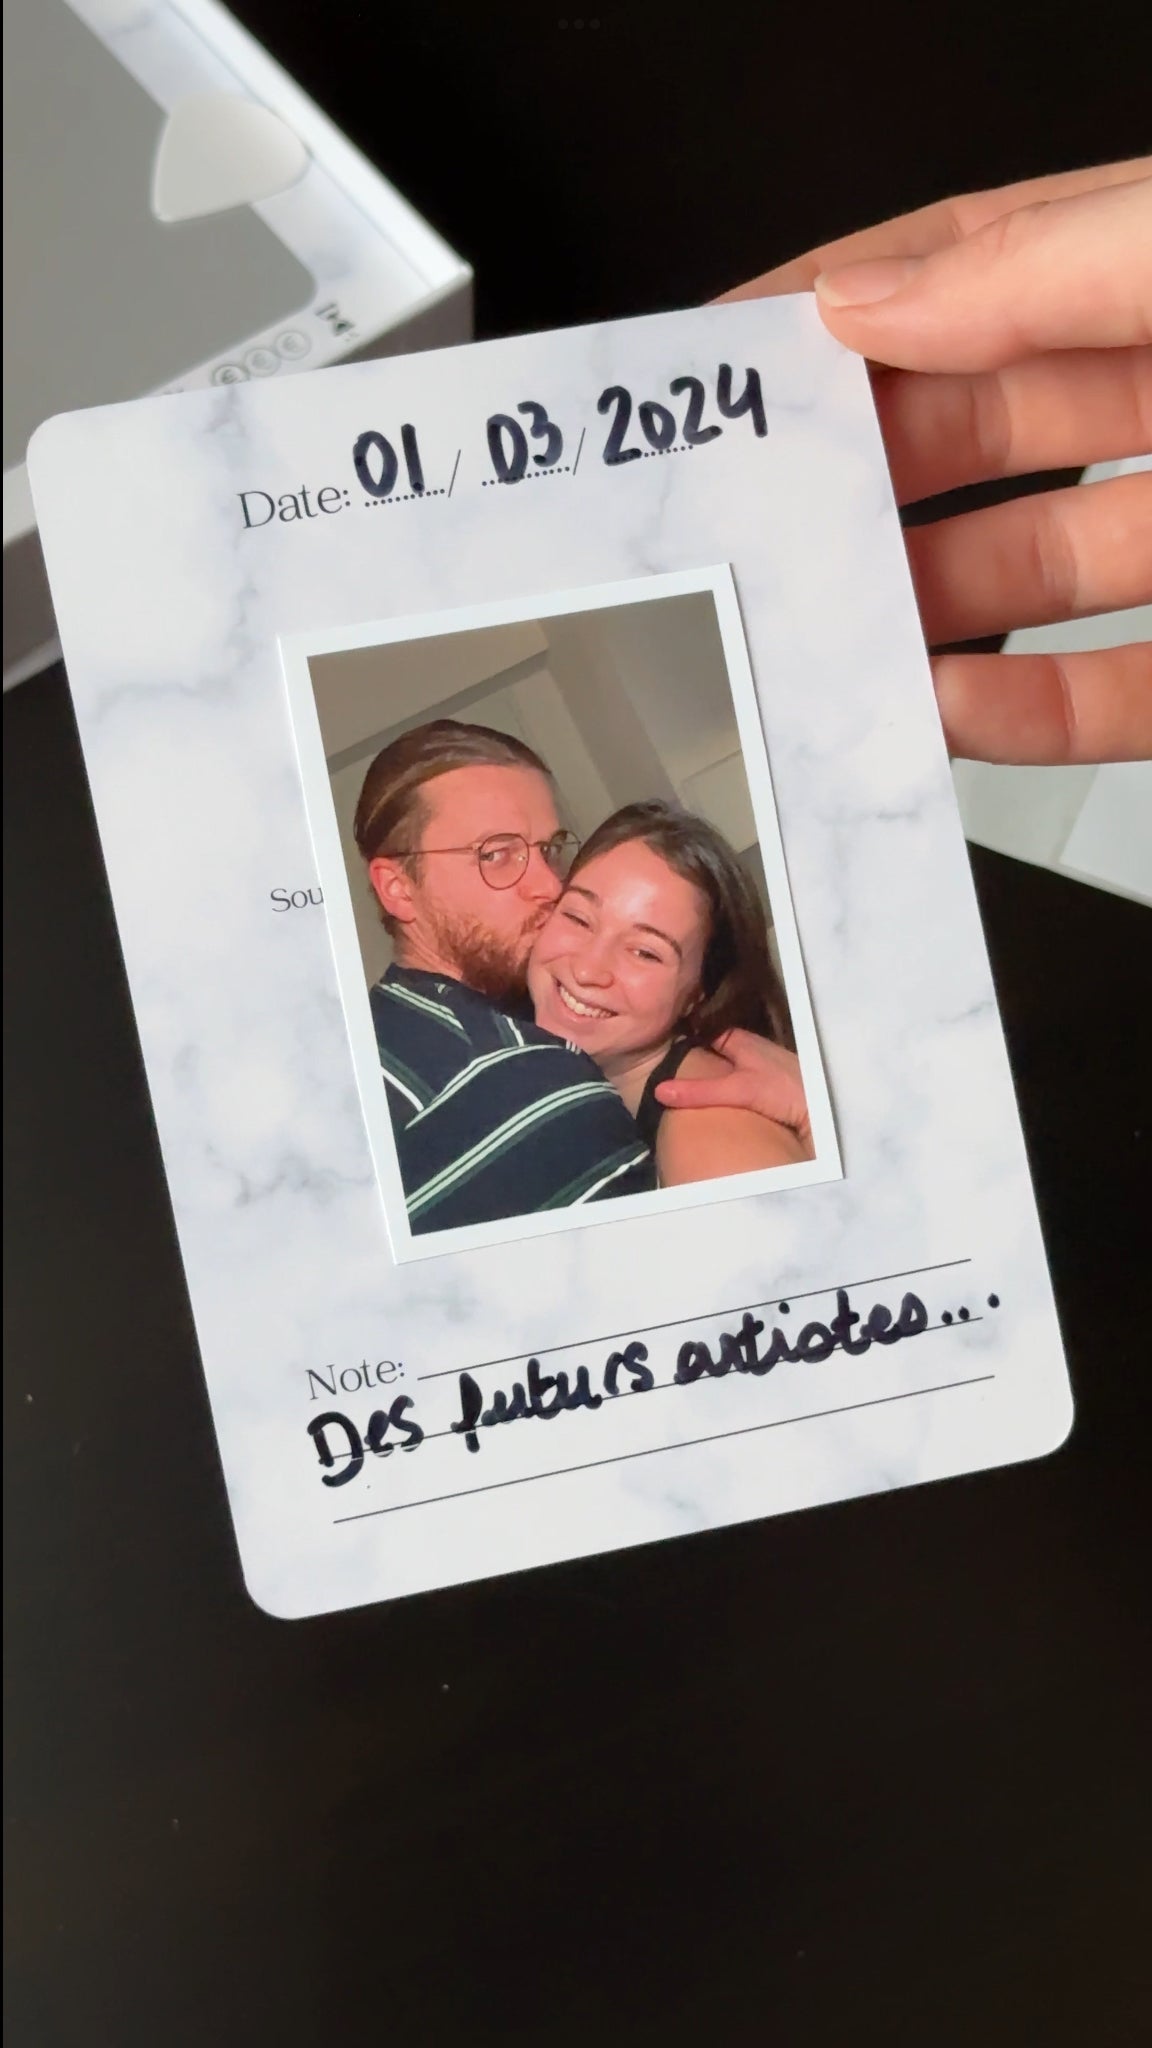 Date: 01 / 03 / 2024
Sou
Note:
Des futurs artistes...